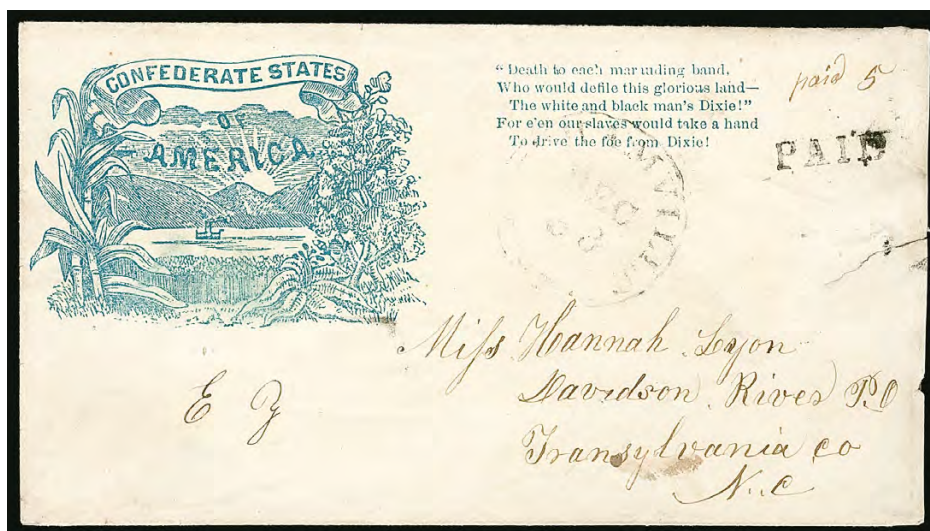 CONFEDERATE STATES
OF
AMERICA
“Death to each marauding band,
Who would defile this glorious land—
The white and black man's Dixie!”
For e'en our slaves would take a hand
To drive the foe from Dixie!
paid 5
PAID
Miss Hannah Lyon
Davidson River P.O
Transylvania co
N.C